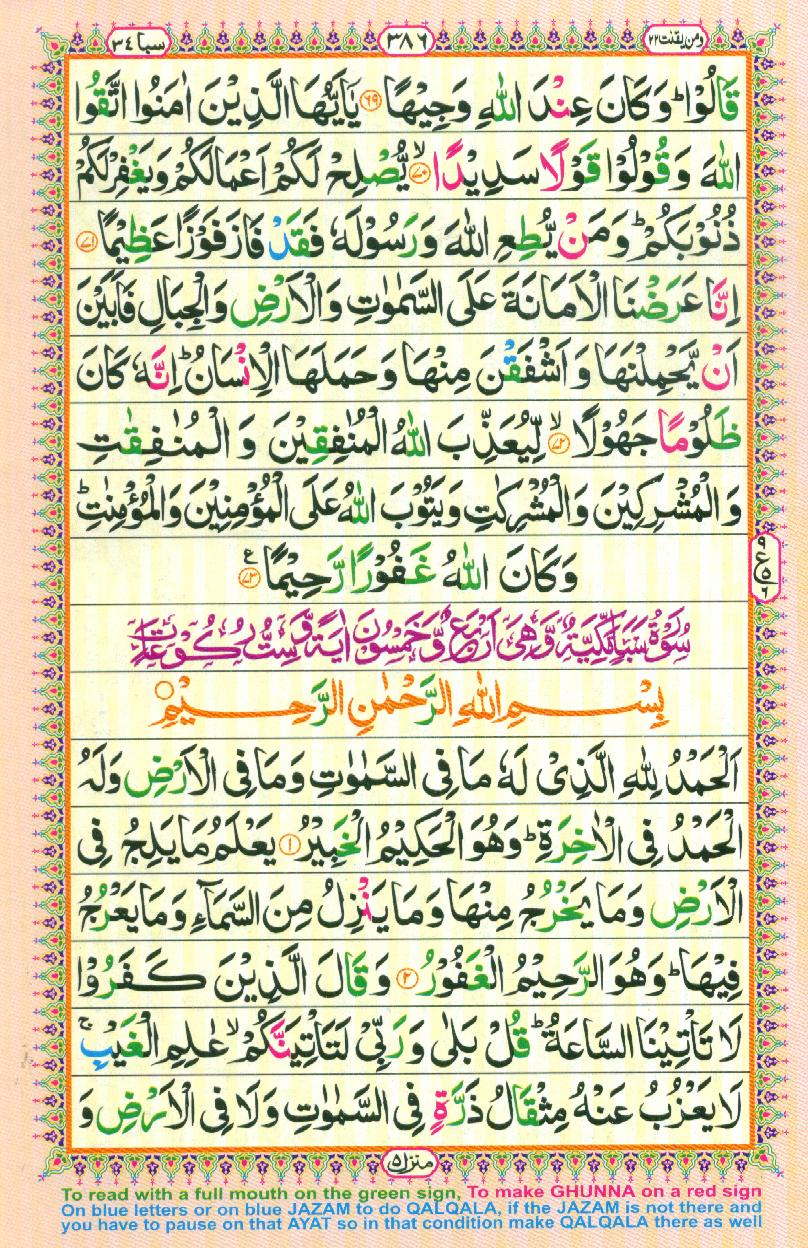 ومن يقنت ٢٢
٣٨٦
سبا ٣٤
قَالُوْا ؕ وَكَانَ عِنْدَ اللّٰهِ وَجِيْهًا ﴿۶۹﴾ يٰۤاَيُّهَا الَّذِيْنَ اٰمَنُوا اتَّقُوا
اللّٰهَ وَقُوْلُوْا قَوْلًا سَدِيْدًا ۙ﴿۷۰﴾ يُّصْلِحْ لَكُمْ اَعْمَالَكُمْ وَيَغْفِرْ لَكُمْ
ذُنُوْبَكُمْ ؕ وَمَنْ يُّطِعِ اللّٰهَ وَرَسُوْلَهٗ فَقَدْ فَازَ فَوْزًا عَظِيْمًا ﴿۷۱﴾
اِنَّا عَرَضْنَا الْاَمَانَةَ عَلَى السَّمٰوٰتِ وَالْاَرْضِ وَالْجِبَالِ فَاَبَيْنَ
اَنْ يَّحْمِلْنَهَا وَاَشْفَقْنَ مِنْهَا وَحَمَلَهَا الْاِنْسَانُ ؕ اِنَّهٗ كَانَ
ظَلُوْمًا جَهُوْلًا ۙ﴿۷۲﴾ لِّيُعَذِّبَ اللّٰهُ الْمُنٰفِقِيْنَ وَالْمُنٰفِقٰتِ
وَالْمُشْرِكِيْنَ وَالْمُشْرِكٰتِ وَيَتُوْبَ اللّٰهُ عَلَى الْمُؤْمِنِيْنَ وَالْمُؤْمِنٰتِ ؕ
وَكَانَ اللّٰهُ غَفُوْرًا رَّحِيْمًا ﴿۷۳﴾ ع
۹ ع ۵ ۶
سُوْرَةُ سَبَاٍ مَّكِّيَّةٌ وَّهِيَ اَرْبَعٌ وَّخَمْسُوْنَ اٰيَةً وَّسِتُّ رُكُوْعَاتٍ
بِسْمِ اللّٰهِ الرَّحْمٰنِ الرَّحِيْمِ
اَلْحَمْدُ لِلّٰهِ الَّذِيْ لَهٗ مَا فِي السَّمٰوٰتِ وَمَا فِي الْاَرْضِ وَلَهُ
الْحَمْدُ فِي الْاٰخِرَةِ ؕ وَهُوَ الْحَكِيْمُ الْخَبِيْرُ ﴿۱﴾ يَعْلَمُ مَا يَلِجُ فِي
الْاَرْضِ وَمَا يَخْرُجُ مِنْهَا وَمَا يَنْزِلُ مِنَ السَّمَآءِ وَمَا يَعْرُجُ
فِيْهَا ؕ وَهُوَ الرَّحِيْمُ الْغَفُوْرُ ﴿۲﴾ وَقَالَ الَّذِيْنَ كَفَرُوْا
لَا تَاْتِيْنَا السَّاعَةُ ؕ قُلْ بَلٰى وَرَبِّيْ لَتَاْتِيَنَّكُمْ ۙ عٰلِمِ الْغَيْبِ ۚ
لَا يَعْزُبُ عَنْهُ مِثْقَالُ ذَرَّةٍ فِي السَّمٰوٰتِ وَلَا فِي الْاَرْضِ وَ
منزل ۵
To read with a full mouth on the green sign, To make GHUNNA on a red sign
On blue letters or on blue JAZAM to do QALQALA, if the JAZAM is not there and
you have to pause on that AYAT so in that condition make QALQALA there as well